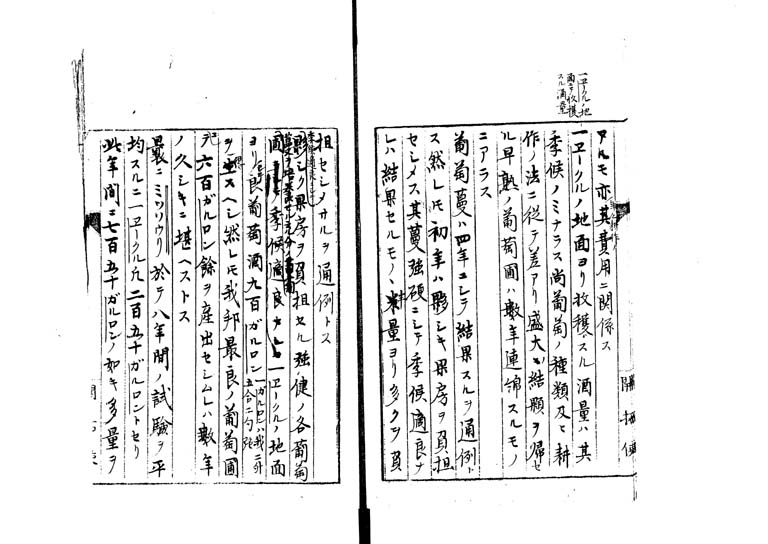 一ヱークル ノ地
面ヨリ收穫
スル酒量
アルモ亦其費用ニ関係ス
一ヱークルノ地面ヨリ收穫スル酒量ハ其
季候ノミナラス尚葡萄ノ種類及ヒ耕
作ノ法ニ從テ差アリ盛大ノ結顆ヲ帰セ
ル早熟ノ葡萄圃ハ数年連綿スルモノ
ニアラス
葡萄蔓ハ四年ニシテ結果スルヲ通例ト
ス然レ𪜈初年ハ夥シキ果房ヲ負担
セシメス其蔓強硬ニシテ季候適良ナ
レハ結果セルモノヽ量ヨリ多クヲ負
開拓使
担セシメサルヲ通例トス
夥シク果房ヲ負担セル強健ノ各葡萄
季候適良ナ 一ヱークルノ地面
ヨリ良葡萄酒九百ガルロン一ガルロンハ我二升五合二勺強
ヲ スヘシ然レ𪜈我邦最良ノ葡萄圃
六百ガルロン餘ヲ産出セシムレハ數年
ノ久シキニ堪ヘストス
曩ニミツソウリ於テ八年間ノ試驗ヲ平
均スルニ一ヱークル凢二百五十ガルロントセリ
此年間ニ七百五十ガルロンノ如キ多量ヲ